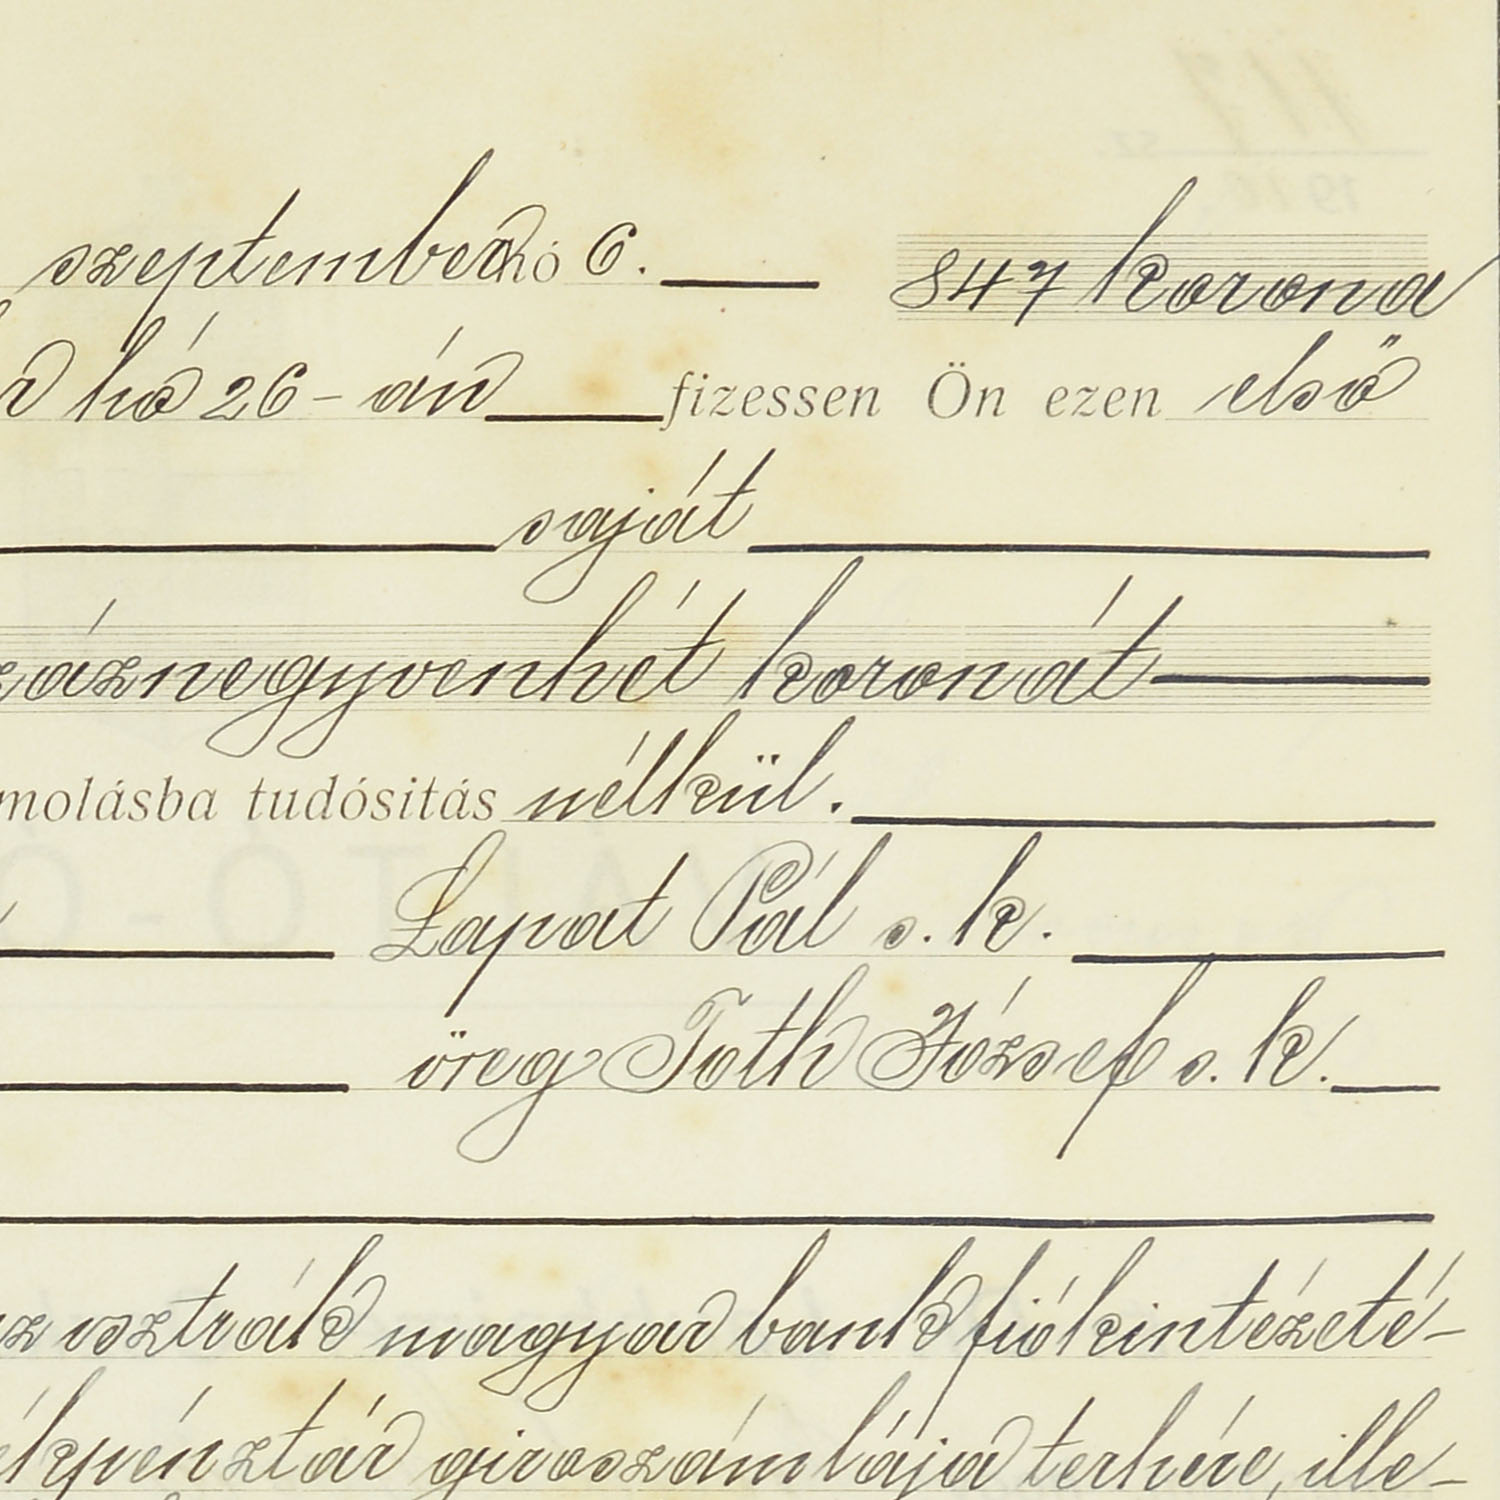 szeptember hó 6. 847 korona
hó 26-án fizessen Ön ezen első
saját
száznegyvenhét koronát
molásba tudósitás nélkül.
Lapat Pál s. k.
öreg Toth József s. k.
osztrák magyar bank fiókintézeté-
girószámlája terhére, ille-